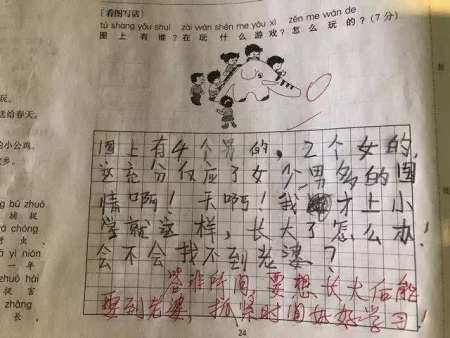 [看图写话]
tú shàng yǒu shuí zài wán shén me yóu xì zěn me wán de
图上有谁？在玩什么游戏？怎么玩的？(7分)
玩。
送给春天。
的小公鸡。
乡。
图上有4个男的，2个女的，
这充分反应了女少男多的国
情啊！天啊！我才上小
学就这样，长大了怎么办！
会不会找不到老婆？
答非所问，要想长大后能
娶到老婆，抓紧时间好好学习！
bǔ zhuō
捕捉
chóng
虫
yì nián
一年
zhuō hài
捉害
zhǎng
长，
24